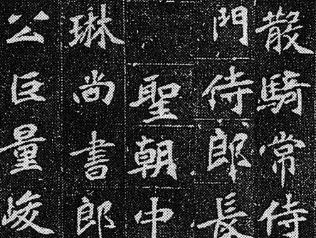 散騎常侍
門侍郎長
聖朝中
琳尚書郎
公巨量峻